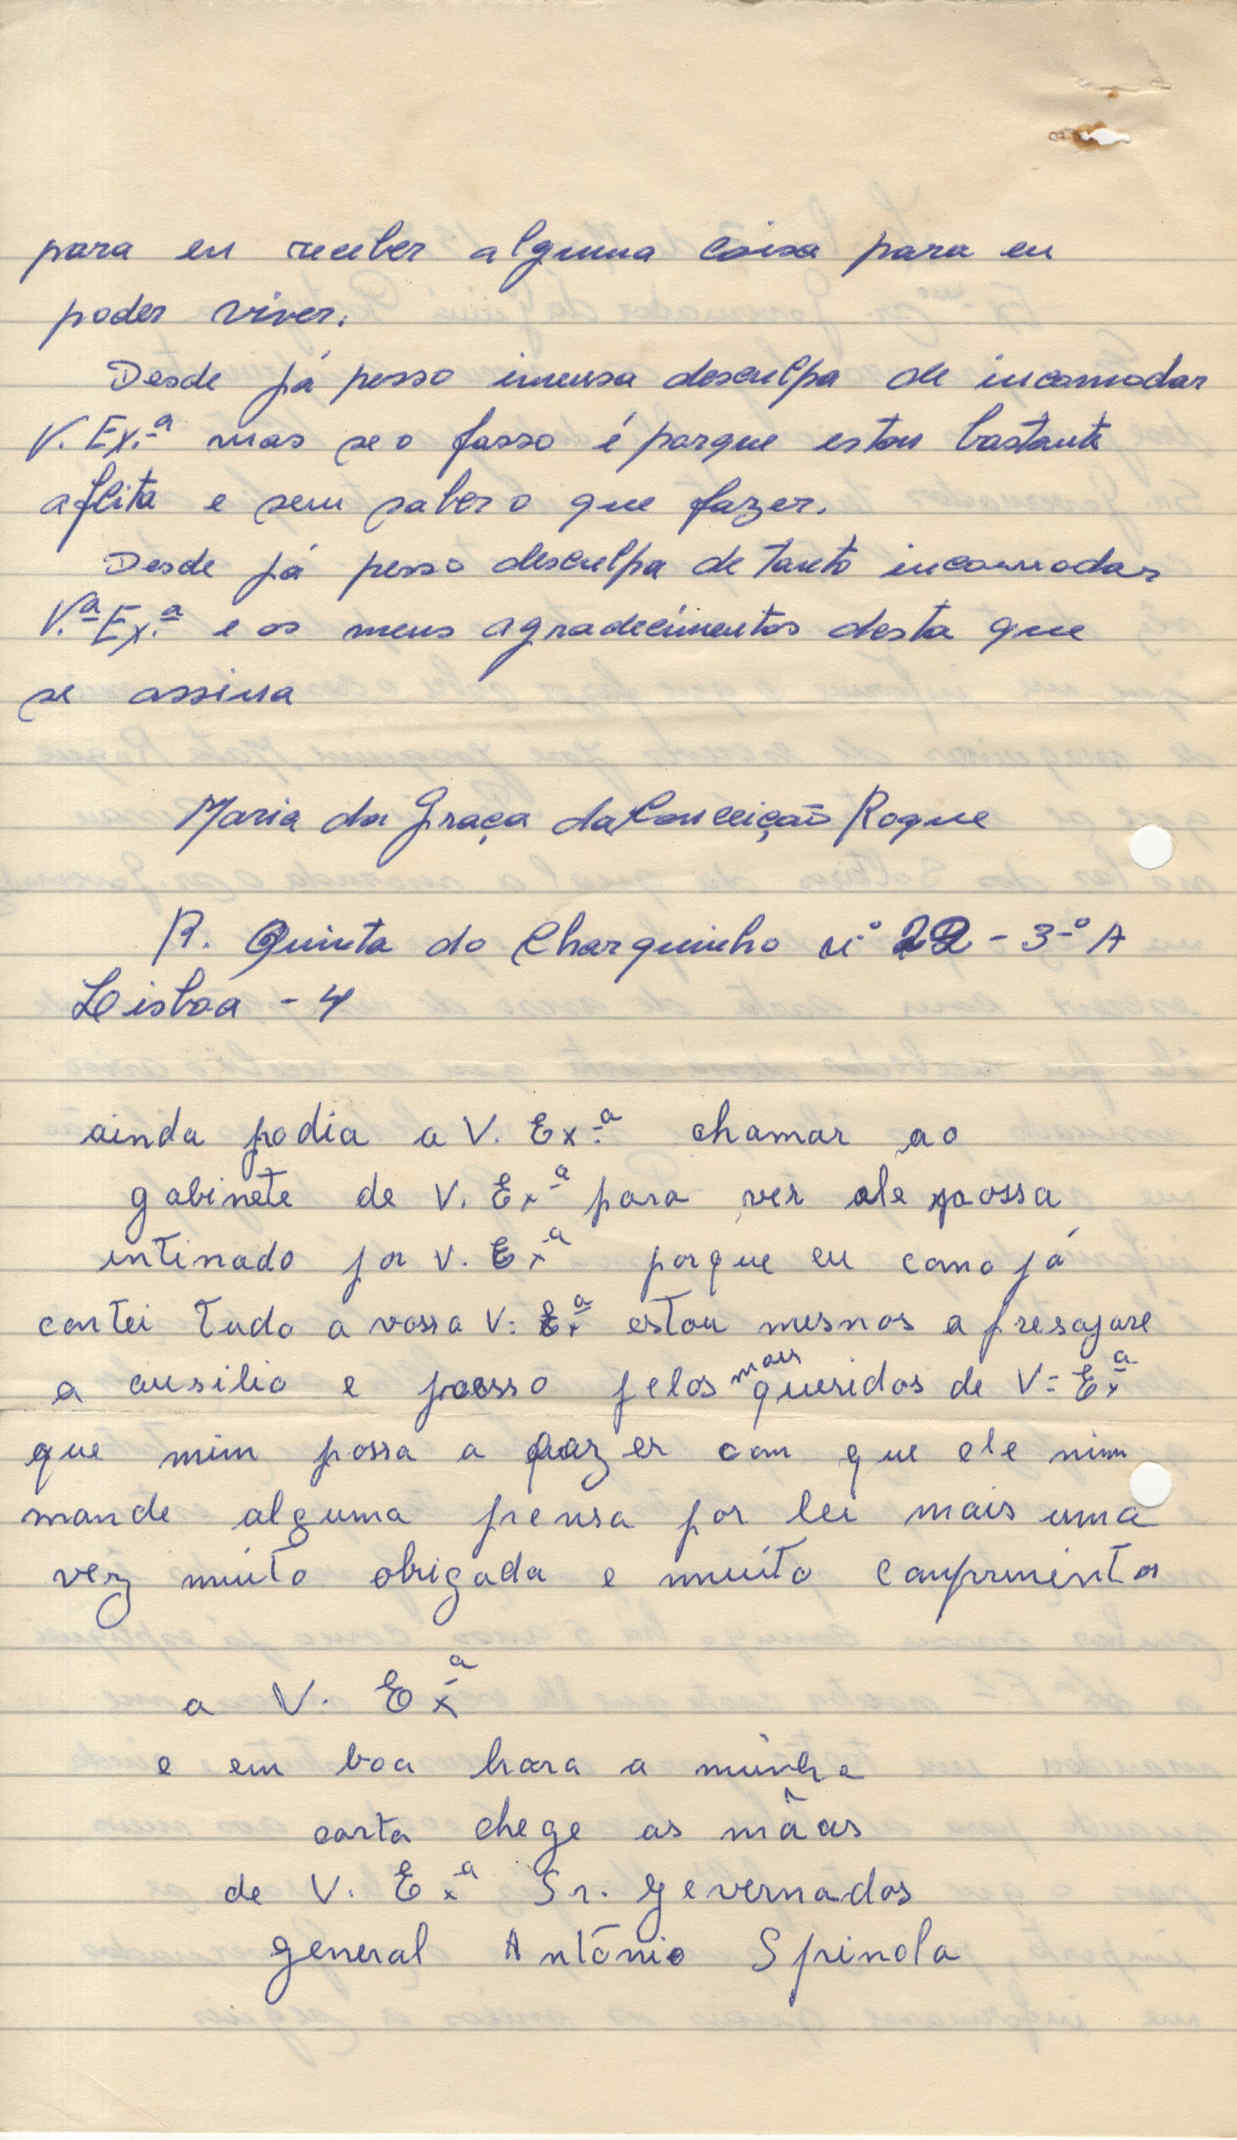 para eu receber alguma coisa para eu
poder viver.
Desde já pesso imensa desculpa de incomodar
V. Ex.ª mas se o fasso é porque estou bastante
aflita e sem saber o que fazer.
Desde já pesso desculpa de tanto incomodar
V.ª Ex.ª e os meus agradecimentos desta que
se assina
Maria da Graça da Conceição Roque
R. Quinta do Charquinho nº 22 - 3-º A
Lisboa - 4
ainda podia a V. Ex.ª chamar ao
gabinete de V. Exª para ver ele
intinado por V. Exª porque eu como já
contei tudo a vossa V. Exª estou mesmos a
a ausilio e pesso pelos mais queridos de V. Exª
que mim possa a fazer com que ele mim
mande alguma pensa por lei mais uma
vez muito obrigada e muito comprimentos
a V. Exª
e em boa hora a minha
carta chege as mãos
de V. Exª Sr. Gevernador
general António Spinola